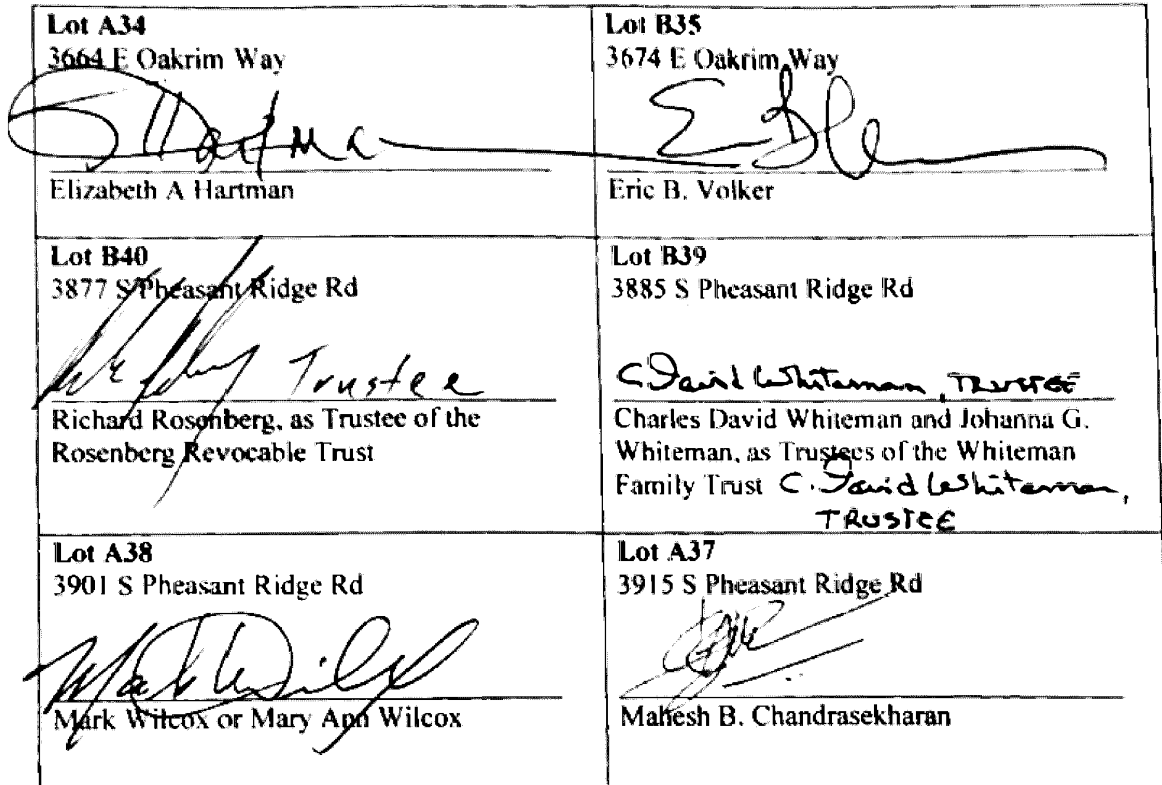 Lot A34
3664 E Oakrim Way
Hartma
Elizabeth A Hartman
Lot B35
3674 E Oakrim Way
Eric B. Volker
Lot B40
3877 S Pheasant Ridge Rd
Trustee
Richard Rosenberg, as Trustee of the
Rosenberg Revocable Trust
Lot B39
3885 S Pheasant Ridge Rd
C. David Whiteman, TRUSTEE
Charles David Whiteman and Johanna G.
Whiteman, as Trustees of the Whiteman
Family Trust C. David Whiteman,
TRUSTEE
Lot A38
3901 S Pheasant Ridge Rd
Mark Wilcox
Mark Wilcox or Mary Ann Wilcox
Lot A37
3915 S Pheasant Ridge Rd
Mahesh B. Chandrasekharan